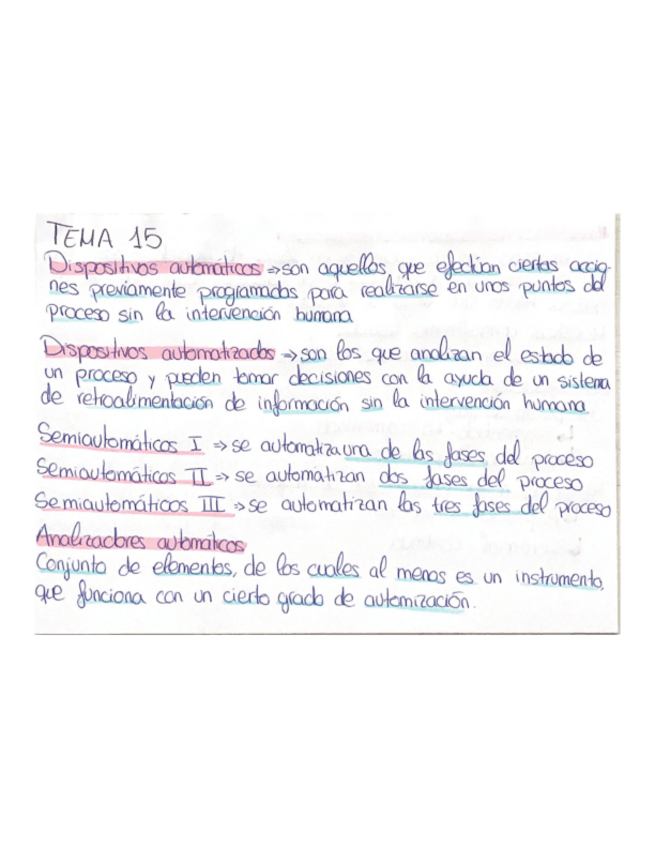 TEMA 15
Dispositivos automáticos => son aquellos que efectúan ciertas accio-
nes previamente programadas para realizarse en unos puntos del
proceso sin la intervención humana
Dispositivos automatizados => son los que analizan el estado de
un proceso y pueden tomar decisiones con la ayuda de un sistema
de retroalimentación de información sin la intervención humana.
Semiautomáticos I => se automatiza una de las fases del proceso
Semiautomáticos II => se automatizan dos fases del proceso
Semiautomáticos III => se automatizan las tres fases del proceso
Analizadores automáticos
Conjunto de elementos, de los cuales al menos es un instrumento,
que funciona con un cierto grado de automización.